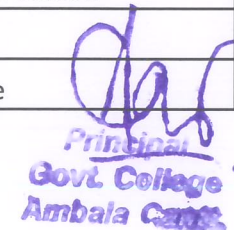 Principal
Govt. College
Ambala Cantt.